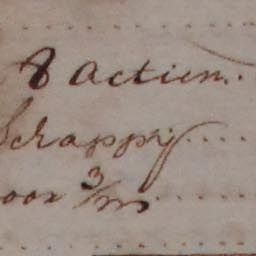 8 actien....
Schrappij.....
oor 3/m.....